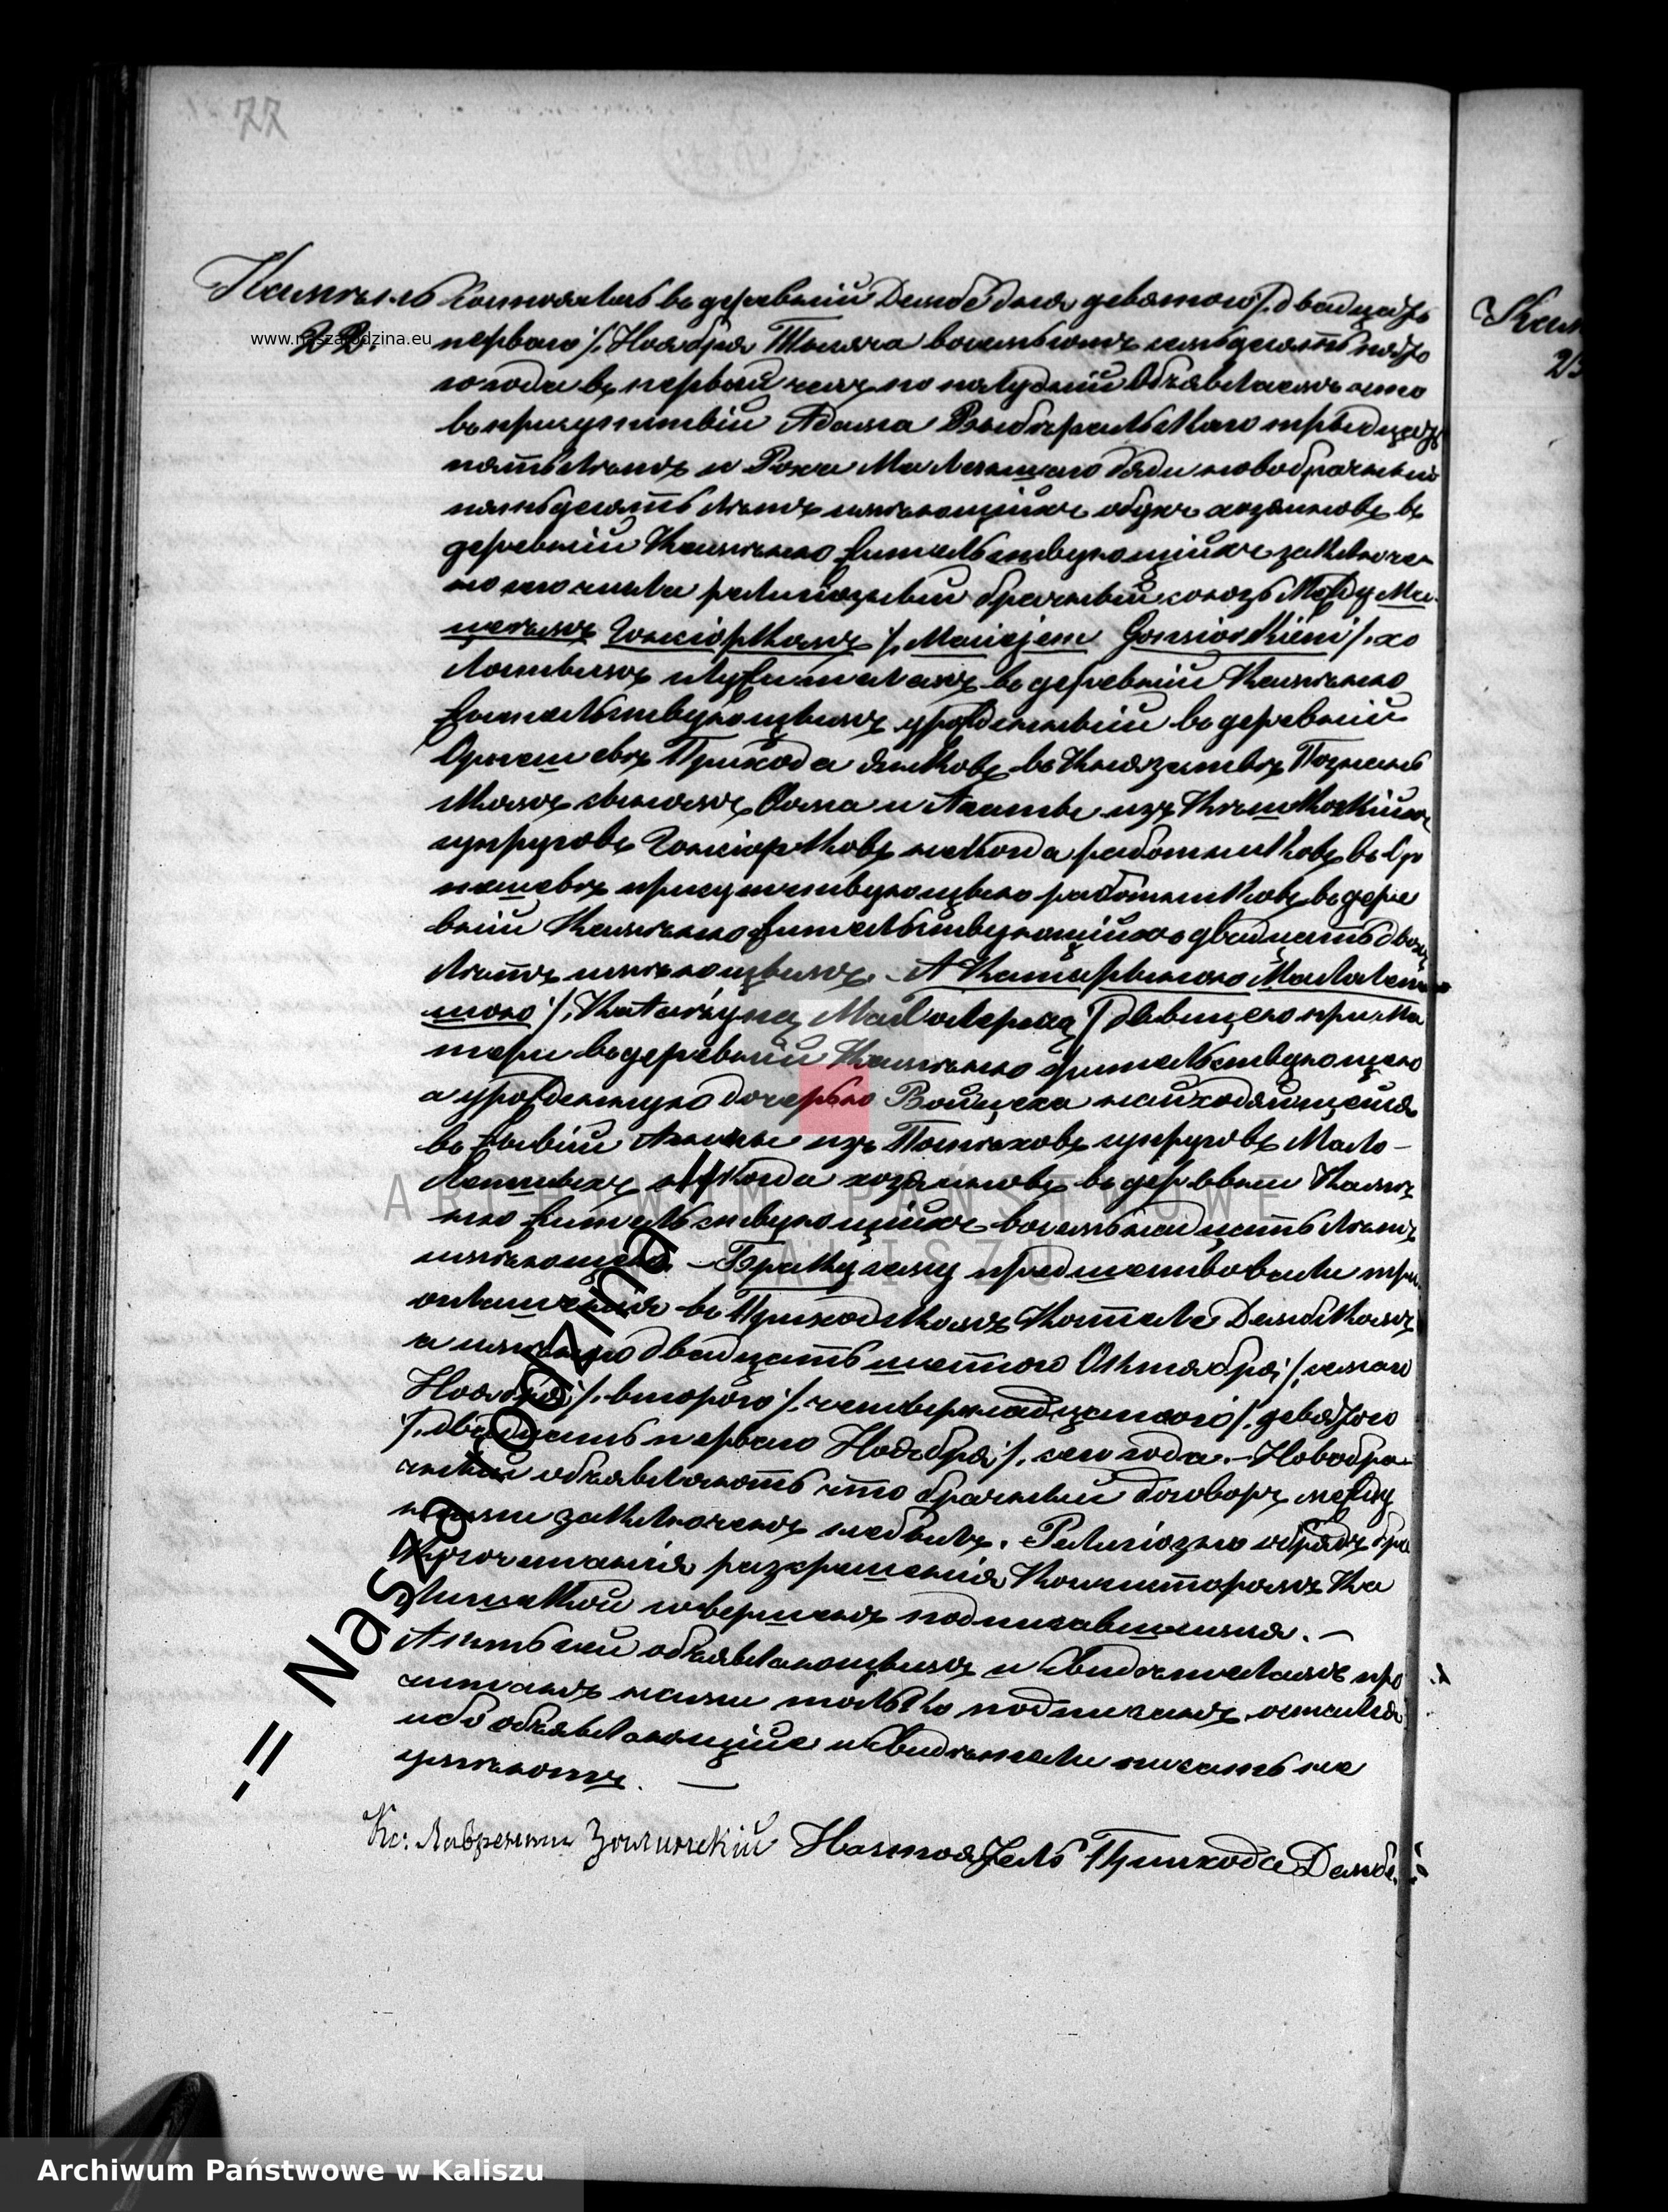 77
Камень
22.
www.naszarodzina.eu
Состоялось въ деревнии Дембе дня девятого /двадцать
перваго/ Ноября Тысяча восемьсотъ семьдесятъ пято
го года въ первый часъ по полуднии Объявляемъ что
въ присутствии Адама тридцать
пять летъ и Роха дяди новобрачный
пятьдесятъ летъ имеющихъ обухъ хозяиновъ въ
деревнии Каменю жительствующихъ заключе
но сего числа религіозный брачный союзъ Между Ма
цеемъ Гонсіоркомъ /Maciejem Gonsiorkiem/ хо
лостымъ въ деревнии Каменю
жительствующымъ урожденный въ деревнии
Прихода въ Князствѣ Познань
скомъ сыномъ и Агаты изъ
супруговъ Гонсіорковъ некогда работниковъ въ
присутствующыхо работниковъ въ дере
внии Каменю жительствующихъ двадцать два
летъ имеющымъ. – А Катарыною Малолеп
шою /Katarzyną Małolepszą/ девицею при ма
тери въ деревнии Каменю жительствующею
а урожденную дочерью Войцеха находяйщейся
въ живыи изъ супруговъ Мало-
лепшыхъ некогда хозяиновъ въ деревнии Каме
ню жительствующихъ восемьнадцать летъ
имеющею. – Браку сему предшествовали три
оглашения въ Приходскомъ Костеле Дембскомъ
а именно двадцать шестого Октября /семаго
Ноября/ второго /четвернадцатого/ девятого
/двадцать перваго Ноября/ сего года. – Новобра
чный объявляютъ что брачный договоръ между
ними заключенъ небылъ. Религіозно обрядъ бра
косочетанія разрешенія Консисторомъ Ка
лишской совершенъ подписавшимся. –
Актъ сей объявляющымъ и Свидѣтелямъ про
читанъ нами только подписанъ осталъся
ибо объявляющіе и Свидѣтели писать не
умѣютъ. —
Кс. Лаврентий Настоятель Прихода Дембе.
Кам
23
ARCHIWUM PAŃSTWOWE
W KALISZU
-= Nasza rodzina =-
Archiwum Państwowe w Kaliszu